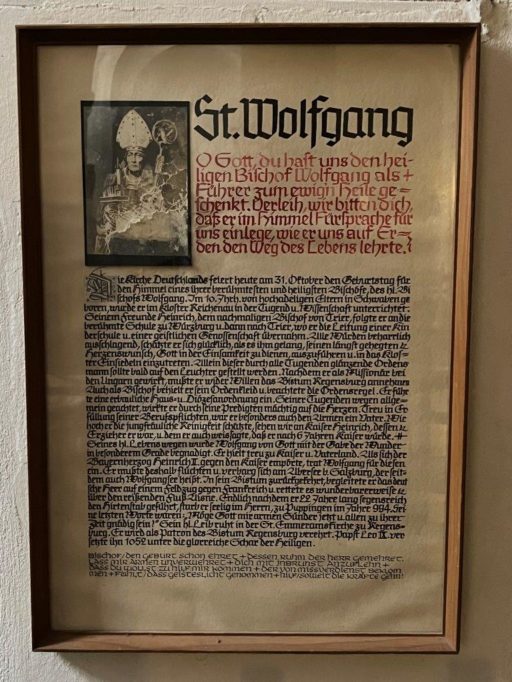 St. Wolfgang
O Gott, du hast uns den hei-
ligen Bischof Wolfgang als +
Führer zum ewign Heile ge=
schenkt. Verleih, wir bitten dich,
daß er im Himmel Fürsprache für
uns einlege, wie er uns auf Er=
den den Weg des Lebens lehrte.
Die Kirche Deutschlands feiert heute am 31. Oktober den Geburtstag für
den Himmel eines ihrer berühmtesten und heiligsten Bischöfe, des hl. Bi
schofs Wolfgang. Im 10. Jheh. von hochadeligen Eltern in Schwaben ge
boren, wurde er im Kloster Reichenau in der Tugend u. Wissenschaft unterrichtet.
Seinem Freunde Heinrich, dem nachmaligen Bischof von Trier, folgte er an die
berühmte Schule zu Würzburg u. dann nach Trier, wo er die Leitung einer Kin
derschule u. einer geistlichen Genossenschaft übernahm. Alle Würden beharrlich
ausschlagend, schätzte er sich glücklich, als es ihm gelang, seinen längst gehegten
Herzenswunsch, Gott in der Einsamkeit zu dienen, auszuführen u. in das Klos=
ter Einsiedeln einzutreten. Allein dieser durch alle Tugenden glänzende Ordens
mann sollte bald auf den Leuchter gestellt werden. Nachdem er als Missionär bei
den Ungarn gewirkt, mußte er wider Willen das Bistum Regensburg annehmen
Auch als Bischof behielt er sein Ordenskleid u. beachtete die Ordensregel. Er führ
te eine erbauliche Haus= u. Diözesanordnung ein. Seiner Tugenden wegen allge=
mein geachtet, wirkte er durch seine Predigten mächtig auf die Herzen. Treu in Er
füllung seiner Berufspflichten, war er besonders auch den Armen ein Vater. Wie
hoch er die jungfräuliche Reinigkeit schätzte, sehen wir an Kaiser Heinrich, dessen
Erzieher er war, u. dem er auch weissagte, daß er nach 6 Jahren Kaiser würde.
Seines hl. Lebens wegen wurde Wolfgang von Gott mit der Gabe der Wunder
in besonderem Grade begnadigt. Er hielt treu zu Kaiser u. Vaterland. Als sich der
Bayernherzog Heinrich II. gegen den Kaiser empörte, trat Wolfgang für diesen
ein. Er mußte deshalb flüchten u. verbarg sich am Abersee b. Salzburg, der seit=
dem auch Wolfgangsee heißt. In sein Bistum zurückgekehrt, begleitete er das deut
sche Heer auf einem Feldzug gegen Frankreich u. rettete es wunderbarerweise
über den reißenden Fluß Aisne. Endlich nachdem er 22 Jahre lang segensreich
den Hirtenstab geführt, starb er seelig im Herrn, zu Puppingen im Jahre 994. Sei
ne letzten Worte waren: „Möge Gott mir armen Sünder jetzt u. allen zu ihrer
Zeit gnädig sein!" Sein hl. Leib ruht in der St. Emmeramskirche zu Regens=
burg. Er wird als Patron des Bistum Regensburg verehrt. Papst Leo IX. ver
setzte ihn 1052 unter die glorreiche Schar der Heiligen.
Bischof/ den Geburt schon ehret + dessen Ruhm der Herr gemehret,
Lass mir Armen unverwehret + dich mit Inbrunst anzuflehn +
dass du zu Hilf mir kommen + der von Missverdienst
men + fahrt/ dass geisteslicht genommen + Hilf/ soweit die Kräfte gehn!